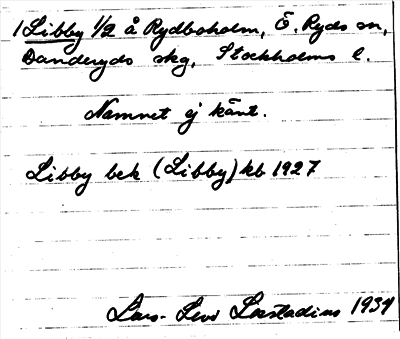 1 Libby 1/2 å Rydboholm, Ö. Ryds sn,
Danderyds skg, Stockholms l.
Namnet ej känt.
Libby bek (Libby) kb 1927
Lars-Levi Læstadius 1934